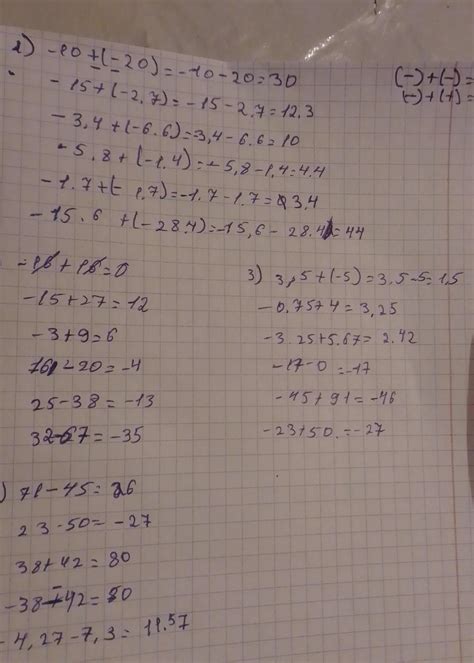 1) -10+(-20)=-10-20=30
(-)+(-)=
(-)+(+)=
-15+(-2.7)=-15-2.7=12.3
-3,4+(-6.6)=3,4-6.6=10
-5.8+(-1.4)=-5,8-1,4=4.4
-1.7+(-1,7)=-1.7-1.7=3,4
-15.6+(-28.4)=-15,6-28.4=44
-16+16=0
-15+27=12
-3+9=6
16-20=-4
25-38=-13
32-67=-35
3) 3,5+(-5)=3,5-5=1,5
-0.75+4=3,25
-3.25+5.67=2.42
-17-0=-17
-45+91=-46
-23+50.=-27
) 71-45=26
23-50=-27
38+42=80
-38-42=80
-4,27-7,3=11.57